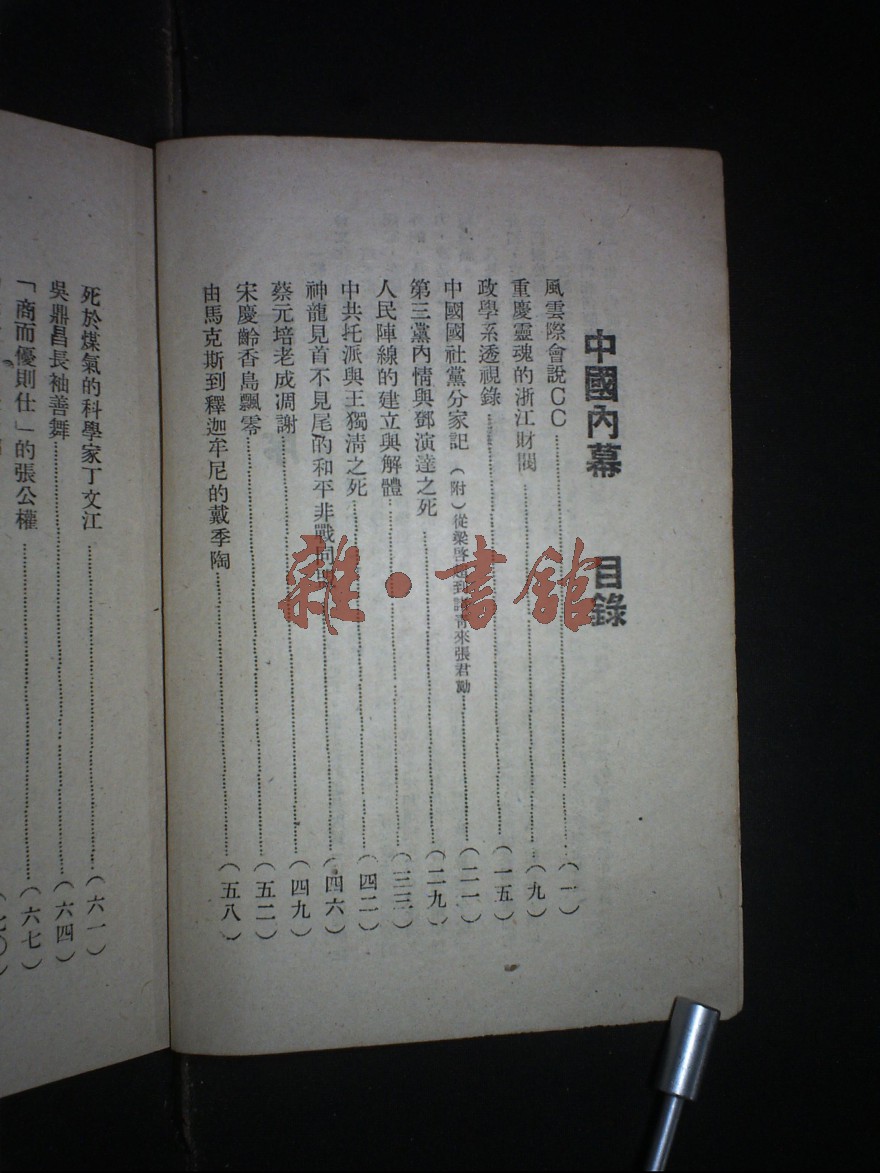 中國內幕 目錄
風雲際會說CC (一)
重慶靈魂的浙江財閥 (九)
政學系透視錄 (一五)
中國國社黨分家記 (附)從梁啓超到諸青來張君勱 (二一)
第三黨內情與鄧演達之死 (二九)
人民陣線的建立與解體 (三三)
中共托派與王獨淸之死 (四二)
神龍見首不見尾的和平非戰同盟 (四六)
蔡元培老成凋謝 (四九)
宋慶齡香島飄零 (五二)
由馬克斯到釋迦牟尼的戴季陶 (五八)
死於煤氣的科學家丁文江 (六一)
吳鼎昌長袖善舞 (六四)
「商而優則仕」的張公權 (六七)
(七〇)
雜·書館